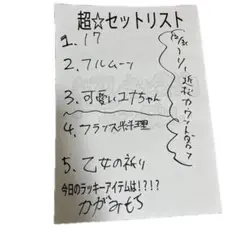 超☆セットリスト
1. 17
2. フルムーン
3. 可愛いユナちゃん
4. フランス料理
5. 乙女の祈り
今日のラッキーアイテムは!?!?
かがみもち
12/31 → 1/1 近松カウントダウン